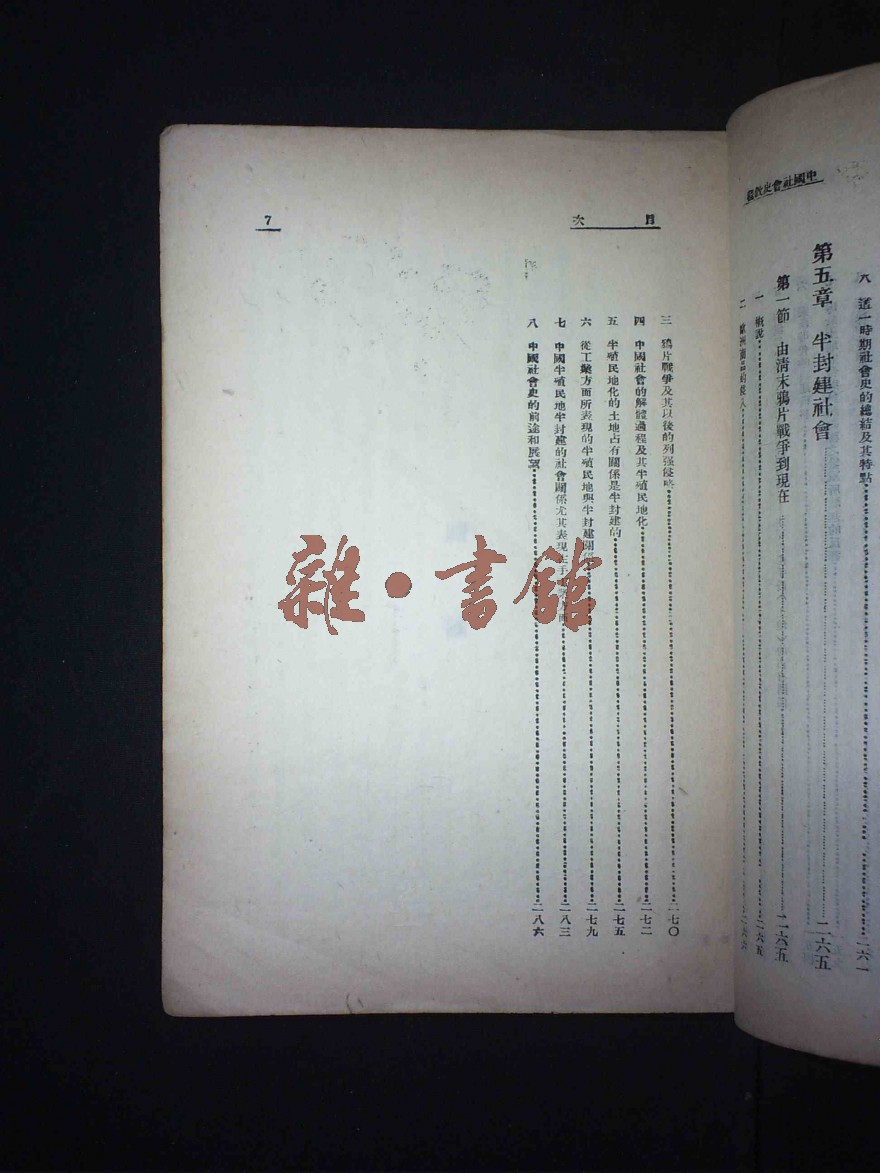 中國社會史教程
六 這一時期社會史的總結及其特點 二六一
第五章 半封建社會 二六五
第一節 由清末鴉片戰爭到現在 二六五
一 概說 二六五
二 歐洲 的侵入 二六六
目 次 7
三 鴉片戰爭及其以後的列强侵略 二七〇
四 中國社會的解體過程及其半殖民地化 二七二
五 半殖民地化的土地占有關係是半封建的 二七五
六 從工業方面所表現的半殖民地與半封建關係 二七九
七 中國半殖民地半封建的社會關係尤其表現在 二八三
八 中國社會史的前途和展望 二八六
雜·書館